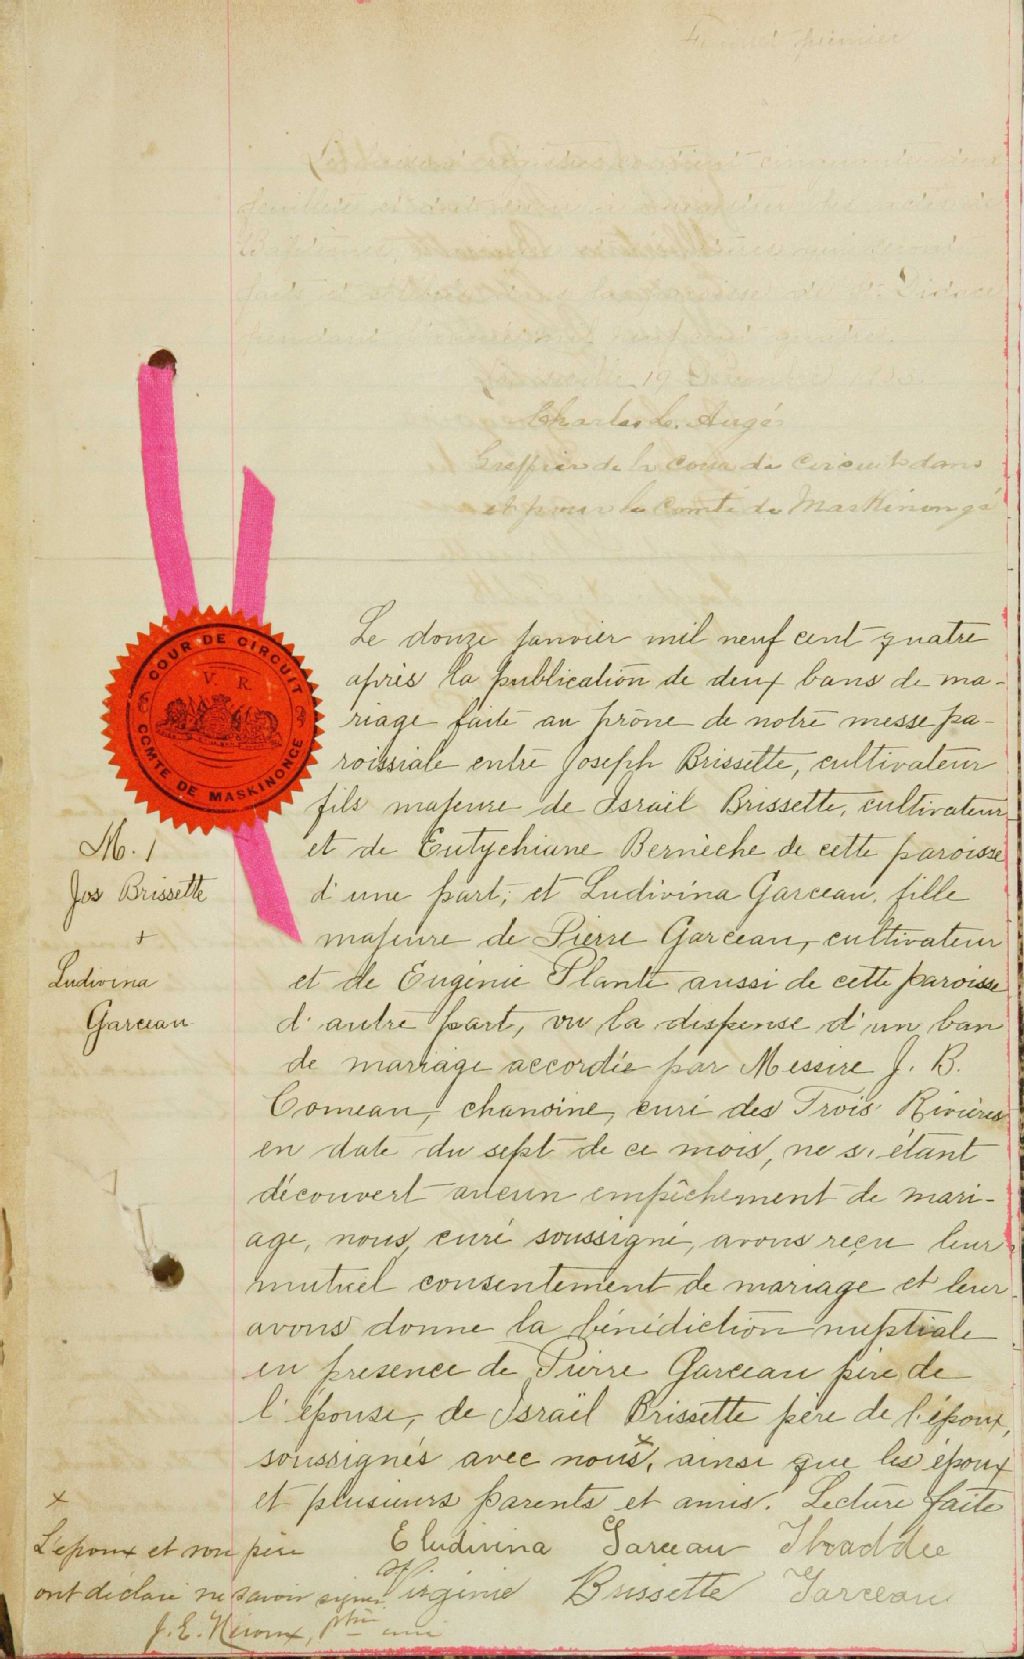 Feuillet premier
Le présent registre contient
feuillets et doit servir à
Baptêmes, Mariages
faits et célébrés dans la paroisse de St. Didace
pendant l'année mil neuf cent quatre
Louiseville 19 Décembre
Charles L. Augé
Greffier de la cour de circuit dans
et pour le comté de Maskinongé
COUR DE CIRCUIT
V. R.
COMTE DE MASKINONGE
Le douze janvier mil neuf cent quatre
après la publication de deux bans de ma-
riage faite au prône de notre messe pa-
roissiale entre Joseph Brissette, cultivateur
fils majeure de Israël Brissette, cultivateur
et de Eutychiane Bernèche de cette paroisse
d'une part; et Ludivina Garceau, fille
majeure de Pierre Garceau, cultivateur
et de Eugénie Plante aussi de cette paroisse
d'autre part, vu la dispense d'un ban
de mariage accordée par Messire J. B.
Comeau, chanoine, curé des Trois Rivières
en date du sept de ce mois, ne s'étant
découvert aucun empêchement de mari-
age, nous, curé soussigné, avons reçu leur
mutuel consentement de mariage et leur
avons donne la bénédiction nuptiale
en presence de Pierre Garceau père de
l'épouse, de Israël Brissette père de l'époux,
soussignés avec nous x, ainsi que les époux
et plusieurs parents et amis. Lecture faite
Eludivina Garceau Thaddée
Virginie Brissette Garceau
M. 1
Jos Brissette
+
Ludivina
Garceau
x
L'époux et son père
ont déclaré ne savoir signer.
J. E. Héroux, ptre curé